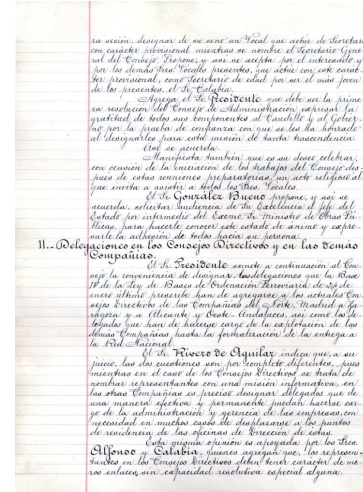 ra sesión, designar de su seno un Vocal que actúe de Secretario
con carácter provisional mientras se nombre el Secretario Gene-
ral del Consejo. Propone, y así se acepta por el interesado y
por los demás Sres. Vocales presentes, que actúe con este carác-
ter provisional, como Secretario de edad por ser el más joven
de los presentes, el Sr. Calabia.
Agrega el Sr. Presidente que debe ser la prime-
ra resolución del Consejo de Administración expresar la
gratitud de todos sus componentes al Caudillo y al Gobier-
no por la prueba de confianza con que se les ha honrado
al designarlos para esta misión de tanta trascendencia
Así se acuerda.
Manifiesta también que es su deseo celebrar,
con ocasión de la iniciación de los trabajos del Consejo des-
pués de estas reuniones preparatorias, un acto religioso al
que invita a asistir a todos los Sres. Vocales.
El Sr. González Bueno propone, y así se
acuerda, solicitar audiencia de Su Excelencia el Jefe del
Estado por intermedio del Excmo Sr. Ministro de Obras Pú-
blicas, para hacerle conocer este estado de ánimo y expre-
sarle la adhesión de todos hacia su persona.
II.- Delegaciones en los Consejos Directivos y en las demás
Compañías.
El Sr. Presidente somete a continuación al Con-
sejo la conveniencia de designar las delegaciones que la Base
IV de la Ley de Bases de Ordenación Ferroviaria de 24 de
enero último prescribe han de agregarse a los actuales Con-
sejos Directivos de las Compañías del Norte, Madrid a Za-
ragoza y a Alicante y Oeste-Andaluces, así como los de-
legados que han de hacerse cargo de la explotación de las
demás Compañías hasta la formalización de la entrega a
la Red Nacional.
El Sr. Rivero de Aguilar indica que, a su
juicio, las dos cuestiones son por completo diferentes, pues
mientras en el caso de los Consejos Directivos se trata de
nombrar representantes con una misión informativa, en
las otras Compañías es preciso designar delegados que de
una manera efectiva y permanente puedan hacerse car-
go de la administración y gerencia de las empresas, con
necesidad en muchos casos de desplazarse a los puntos
de residencia de las oficinas de Dirección de éstas.
Esta misma opinión es apoyada por los Sres.
Alfonso y Calabia, quienes agregan que, los represen-
tantes en los Consejos Directivos deben tener carácter de me-
ros enlaces, sin capacidad resolutiva especial alguna.